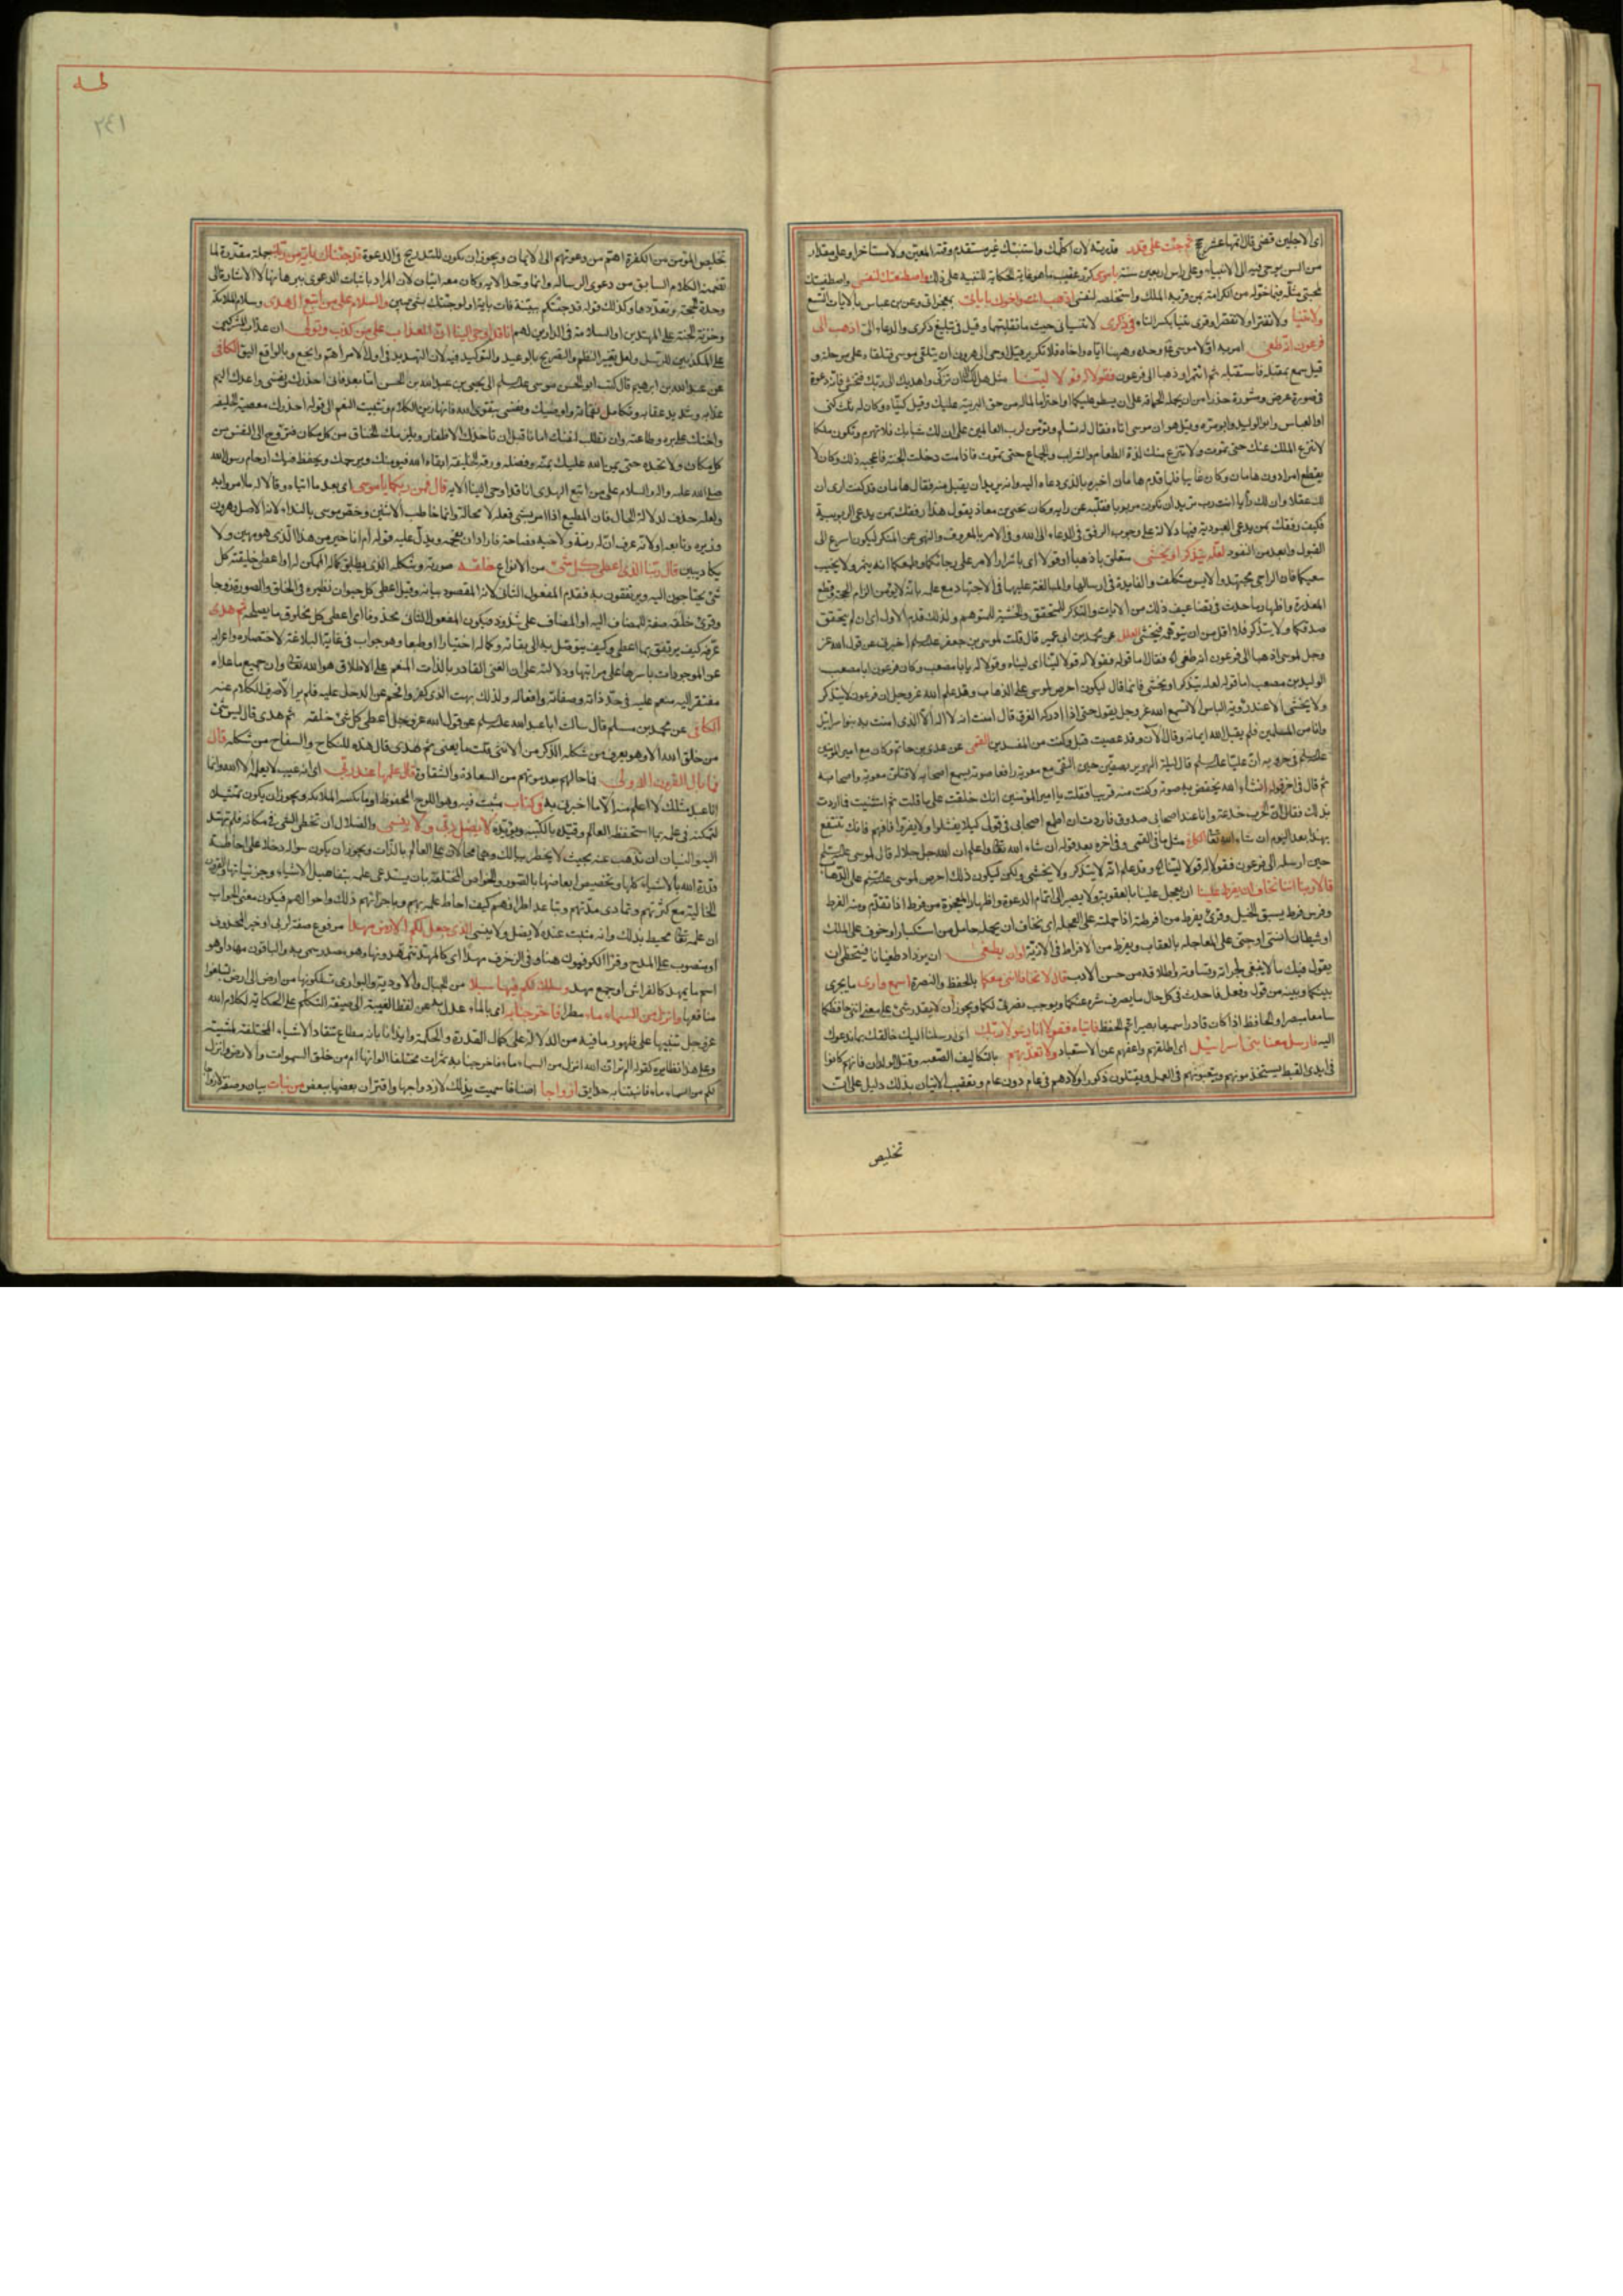 اى الاجلين قضى قال اتمها عشر حجج ثم جئت على قدر قدرته لان اكلمك واستنبئك غير مستقدم وقته المعين ولا مستاخر او على مقدار
من السن يوحى فيه الى الانبياء وعلى راس اربعين سنة يا موسى كرره عقيب ما هو غاية الحكاية للتنبيه على ذلك واصطنعتك لنفسى واصطفيتك
لمحبتى مثله فيما خوله من الكرامة بمن قربه الملك واستخلصه لنفسه اذهب انت واخوك باياتى بمعجزاتى وعن ابن عباس بالايات التسع
ولا تنيا ولا تفترا ولا تقصرا وقرئ تنيا بكسر التاء فى ذكرى لا تنسيانى حيث ما تقلبتما وقيل فى تبليغ ذكرى والدعاء الى اذهبا الى
فرعون انه طغى امر به اولا موسى وحده وههنا اياه واخاه فلا تكرير قيل اوحى الى هرون ان يتلقى موسى
قيل سمع بمقبله فاستقبله فقولا له قولا لينا مثل هل لك الى ان تزكى واهديك الى ربك فتخشى فانه دعوة
فى صورة عرض ومشورة حذرا من ان يحمله الحماقة على ان يسطو عليكما او احتراما لماله من حق التربية عليك وقيل كنياه وكان له ثلث كنى
ابو العباس وابو الوليد وابو مرة
لا ينزع الملك عنك حتى تموت ولا ينزع منك لذة الطعام والشراب والجماع حتى تموت فاذا مت دخلت الجنة فاعجبه ذلك وكان لا
يقطع امرا دون هامان وكان غايبا فلما قدم هامان اخبره بالذى دعاه اليه وانه يريد ان يقبل منه فقال هامان قد كنت ارى ان
لك عقلا وان لك رأيا انت رب تريد ان تكون مربوبا فقلبه عن رايه وكان يحيى بن معاذ يقول هذا رفقك بمن يدعى الربوبية
فكيف رفقك بمن يدعى العبودية فيها دلالة على وجوب الرفق فى الدعاء الى الله وفى الامر بالمعروف والنهى عن المنكر ليكون اسرع الى
القبول وابعد من النفور لعله يتذكر او يخشى متعلق باذهبا او قولا اى باشرا الامر على رجائكما وطمعكما انه يثمر ولا يخيب
سعيكما فان الراجى مجتهد والايس متكلف والفايدة فى ارسالهما والمبالغة عليهما فى الاجتهاد مع علمه بانه لا يؤمن الزام الحجة وقطع
المعذرة واظهار ما حدث فى تضاعيف ذلك من الايات والتذكر للمتحقق والخشية للمتوهم ولذلك قدم الاول اى ان لم يتحقق
صدقكما ولا يتذكر فلا اقل من ان يتوهمه فيخشى العلل عن محمد بن ابى عمير قال قلت لموسى بن جعفر اخبرنى عن قول الله عز
وجل لموسى اذهبا الى فرعون انه طغى فقال اما قوله فقولا له قولا لينا اى ليناه وقولا له يا ابا مصعب وكان فرعون ابا مصعب
الوليد بن مصعب اما قوله لعله يتذكر او يخشى فانما قال ليكون احرص لموسى على الذهاب وقد علم الله عز وجل ان فرعون لا يتذكر
ولا يخشى الا عند رؤية الباس الا تسمع الله عز وجل يقول حتى اذا ادركه الغرق قال امنت انه لا اله الا الذى امنت به بنو اسرائيل
وانا من المسلمين فلم يقبل الله ايمانه وقال الان وقد عصيت قبل وكنت من المفسدين القمى عن عدى بن حاتم وكان مع امير المؤمنين
قال ليلة الهرير بصفين حين التقى مع معوية رافعا صوته يسمع اصحابه لاقتلن معوية واصحابه
ثم قال فى اخر قوله انشاء الله يخفض به صوته وكنت منه قريبا فقلت يا امير المؤمنين انك حلفت على ما قلت ثم استثنيت فما اردت
بذلك فقال ان الحرب خدعة وانا عند اصحابى صدوق فاردت ان اطمع اصحابى فى قولى كيلا يفشلوا ولا يفروا فافهم فانك تنتفع
بهذا بعد اليوم ان شاء الله تعالى الكافى مثل ما فى القمى وفى اخره بعد قوله ان شاء الله واعلم ان الله جل جلاله قال لموسى
حين ارسله الى فرعون فقولا له قولا لينا وقد علم انه لا يتذكر ولا يخشى ولكن ليكون ذلك احرص لموسى على الذهاب
قالا ربنا اننا نخاف ان يفرط علينا ان يعجل علينا بالعقوبة ولا يصبر الى اتمام الدعوة واظهار المعجزة من فرط اذا تقدم ومنه الفرط
وفرس فرط يسبق الخيل وقرئ يفرط من افرطته اذا حملته على العجلة اى نخاف ان يحمله حامل من استكبار او خوف على الملك
او شيطان انسى او جنى على المعاجلة بالعقاب ويفرط من الافراط فى الاذية او ان يطغى ان يزداد طغيانا فيتخطى الى ان
يقول فيك ما لا ينبغى لجراءته وقساوته واطلاقه من حسن الادب قال لا تخافا اننى معكما بالحفظ والنصرة اسمع وارى ما يجرى
بينكما وبينه من قول وفعل فاحدث فى كل حال ما يصرف شره عنكما ويوجب نصرتى لكما ويجوز ان لا يقدر شئ على معنى اننى حافظكما
سامعا مبصرا والحافظ اذا كان قادرا سميعا بصيرا تم الحفظ فاتياه فقولا انا رسولا ربك اى ارسلنا اليك خالقك بما ندعوك
اليه فارسل معنا بنى اسرائيل اى اطلقهم واعفهم عن الاستعباد ولا تعذبهم بالتكاليف الصعبة وقتل الولدان فانهم كانوا
فى ايدى القبط يستخدمونهم ويتعبونهم فى العمل ويقتلون ذكور اولادهم فى عام دون عام وتعقيب الاتيان بذلك دليل على ان
تخليص
طه
٢٤١
تخليص المؤمنين من الكفرة اهم من دعوتهم الى الايمان ويجوز ان يكون للتدريج فى الدعوة قد جئناك باية من ربك جملة مقررة لما
تضمنه الكلام السابق من دعوى الرسالة وانما وحد الاية وكان معه ايتان لان المراد باثبات الدعوى ببرهانها لا الاشارة الى
وحدة الحجة وتعددها وكذلك قوله قد جئتكم ببينة فات باية اولو جئتك بشئ مبين والسلام على من اتبع الهدى وسلام الملائكة
وخزنة الجنة على المهتدين او السلامة فى الدارين لهم انا قد اوحى الينا ان العذاب على من كذب وتولى ان عذاب المشركين
على المكذبين للرسل ولعل تغيير النظم والتصريح بالوعيد والتوكيد فيه لان التهديد فى اول الامر اهم وانجع وبالواقع اليق الكافى
عن عبد الله بن ابرهيم قال كتب ابو الحسن موسى الى يحيى بن عبد الله بن الحسن اما بعد فانى احذرك نفسى واعدك اليم
عذابه وشديد عقابه وتكامل نقماته واوصيك ونفسى بتقوى الله فانها زين الكلام وتثبيت النعم الى قوله احذرك معصية الخليفة
واحثك على بره وطاعته وان تطلب لنفسك امانا قبل ان تاخذك الاظفار ويلزمك الخناق من كل مكان فتروح الى النفس من
كل مكان ولا تجده حتى يمن الله عليك بمنه وفضله ورقة الخليفة ابقاه الله فيومنك ويرحمك ويحفظ فيك ارحام رسول الله
صلى الله عليه واله والسلام على من اتبع الهدى انا قد اوحى الينا الاية قال فمن ربكما يا موسى اى بعد ما اتياه وقالا له ما امروا به
ولعله حذف لدلالة الحال فان المطيع اذا امر بشئ فعله لا محالة وانما خاطب الاثنين وخص موسى بالنداء لانه الاصل وهرون
وزيره وتابعه او لانه عرف ان له رتة ولاخيه فصاحة فاراد ان يفحمه ويدل عليه قوله ام انا خير من هذا الذى هو مهين ولا
يكاد يبين قال ربنا الذى اعطى كل شئ من الانواع خلقه صورته وشكله الذى يطابق كماله الممكن له او اعطى خليقته كل
شئ يحتاجون اليه ويرتفقون به فقدم المفعول الثانى لانه المقصود بيانه وقيل اعطى كل حيوان نظيره فى الخلق والصورة زوجا
وقرئ خلقه صفة للمضاف اليه او المضاف على شذوذ فيكون المفعول الثانى محذوفا اى اعطى كل مخلوق ما يصلحه ثم هدى
عرفه كيف يرتفق بما اعطى وكيف يتوصل به الى بقائه وكماله اختيارا او طبعا وهو جواب فى غاية البلاغة لاختصاره واعرابه
عن الموجودات باسرها على مراتبها ودلالته على ان الغنى القادر بالذات المنعم على الاطلاق هو الله تعالى وان جميع ما عداه
مفتقر اليه منعم عليه فى حد ذاته وصفاته وافعاله ولذلك بهت الذى كفر وافحم عن الدخل عليه فلم ير الا صرف الكلام عنه
الكافى عن محمد بن مسلم قال سالت ابا عبد الله عن قول الله عز وجل اعطى كل شئ خلقه ثم هدى قال ليس شئ
من خلق الله الا وهو يعرف من شكله الذكر من الانثى قلت ما يعنى ثم هدى قال هداه للنكاح والسفاح من شكله قال
فما بال القرون الاولى فما حالهم بعد موتهم من السعادة والشقاوة قال علمها عند ربى اى انه غيب لا يعلمه الا الله وانما
انا عبد مثلك لا اعلم منه الا ما اخبرنى به فى كتاب مثبت فيه وهو اللوح المحفوظ او ما يكتبه الملائكة ويجوز ان يكون تمثيلا
لتمكنه فى علمه بما استحفظه العالم وقيده بالكتبة ويؤيده لا يضل ربى ولا ينسى والضلال ان تخطى الشئ فى مكانه فلم تهتد
اليه والنسيان ان تذهب عنه بحيث لا يخطر ببالك وهما محالان على العالم بالذات ويجوز ان يكون سؤاله دخلا على احاطة
قدرة الله بالاشياء كلها وتخصيص ابعاضها بالصور والخواص المختلفة بان يستدعى علمه بتفاصيل الاشياء وجزئياتها والقرون
الخالية مع كثرتهم وتمادى مدتهم وتباعد اطرافهم كيف احاط علمه بهم وباجزائهم ذلك واحوالهم فيكون معنى الجواب
ان علمه تعالى محيط بذلك وانه مثبت عنده لا يضل ولا ينسى الذى جعل لكم الارض مهدا مرفوع صفة لربى او خبر لمحذوف
او منصوب على المدح وقرأ الكوفيون هنا وفى الزخرف مهدا اى كالمهد تتمهدونها وهو مصدر سمى به والباقون مهادا وهو
اسم ما يمهد كالفراش او جمع مهد وسلك لكم فيها سبلا من الجبال والاودية والبرارى تسلكونها من ارض الى ارض لتبلغوا
منافعها وانزل من السماء ماء مطرا فاخرجنا به اى بالماء عدل به عن لفظ الغيبة الى صيغة التكلم على الحكاية لكلام الله
عز وجل تنبيها على ظهور ما فيه من الدلالة على كمال القدرة والحكمة وايذانا بانه مطاع تنقاد الاشياء المختلفة لمشيته
وعلى هذا نظايره كقوله الم تر ان الله انزل من السماء ماء فاخرجنا به ثمرات مختلفا الوانها ام من خلق السموات والارض وانزل
لكم من السماء ماء فانبتنا به حدايق ازواجا اصنافا سميت بذلك لازدواجها واقتران بعضها ببعض من نبات بيان وصفة لازواجا